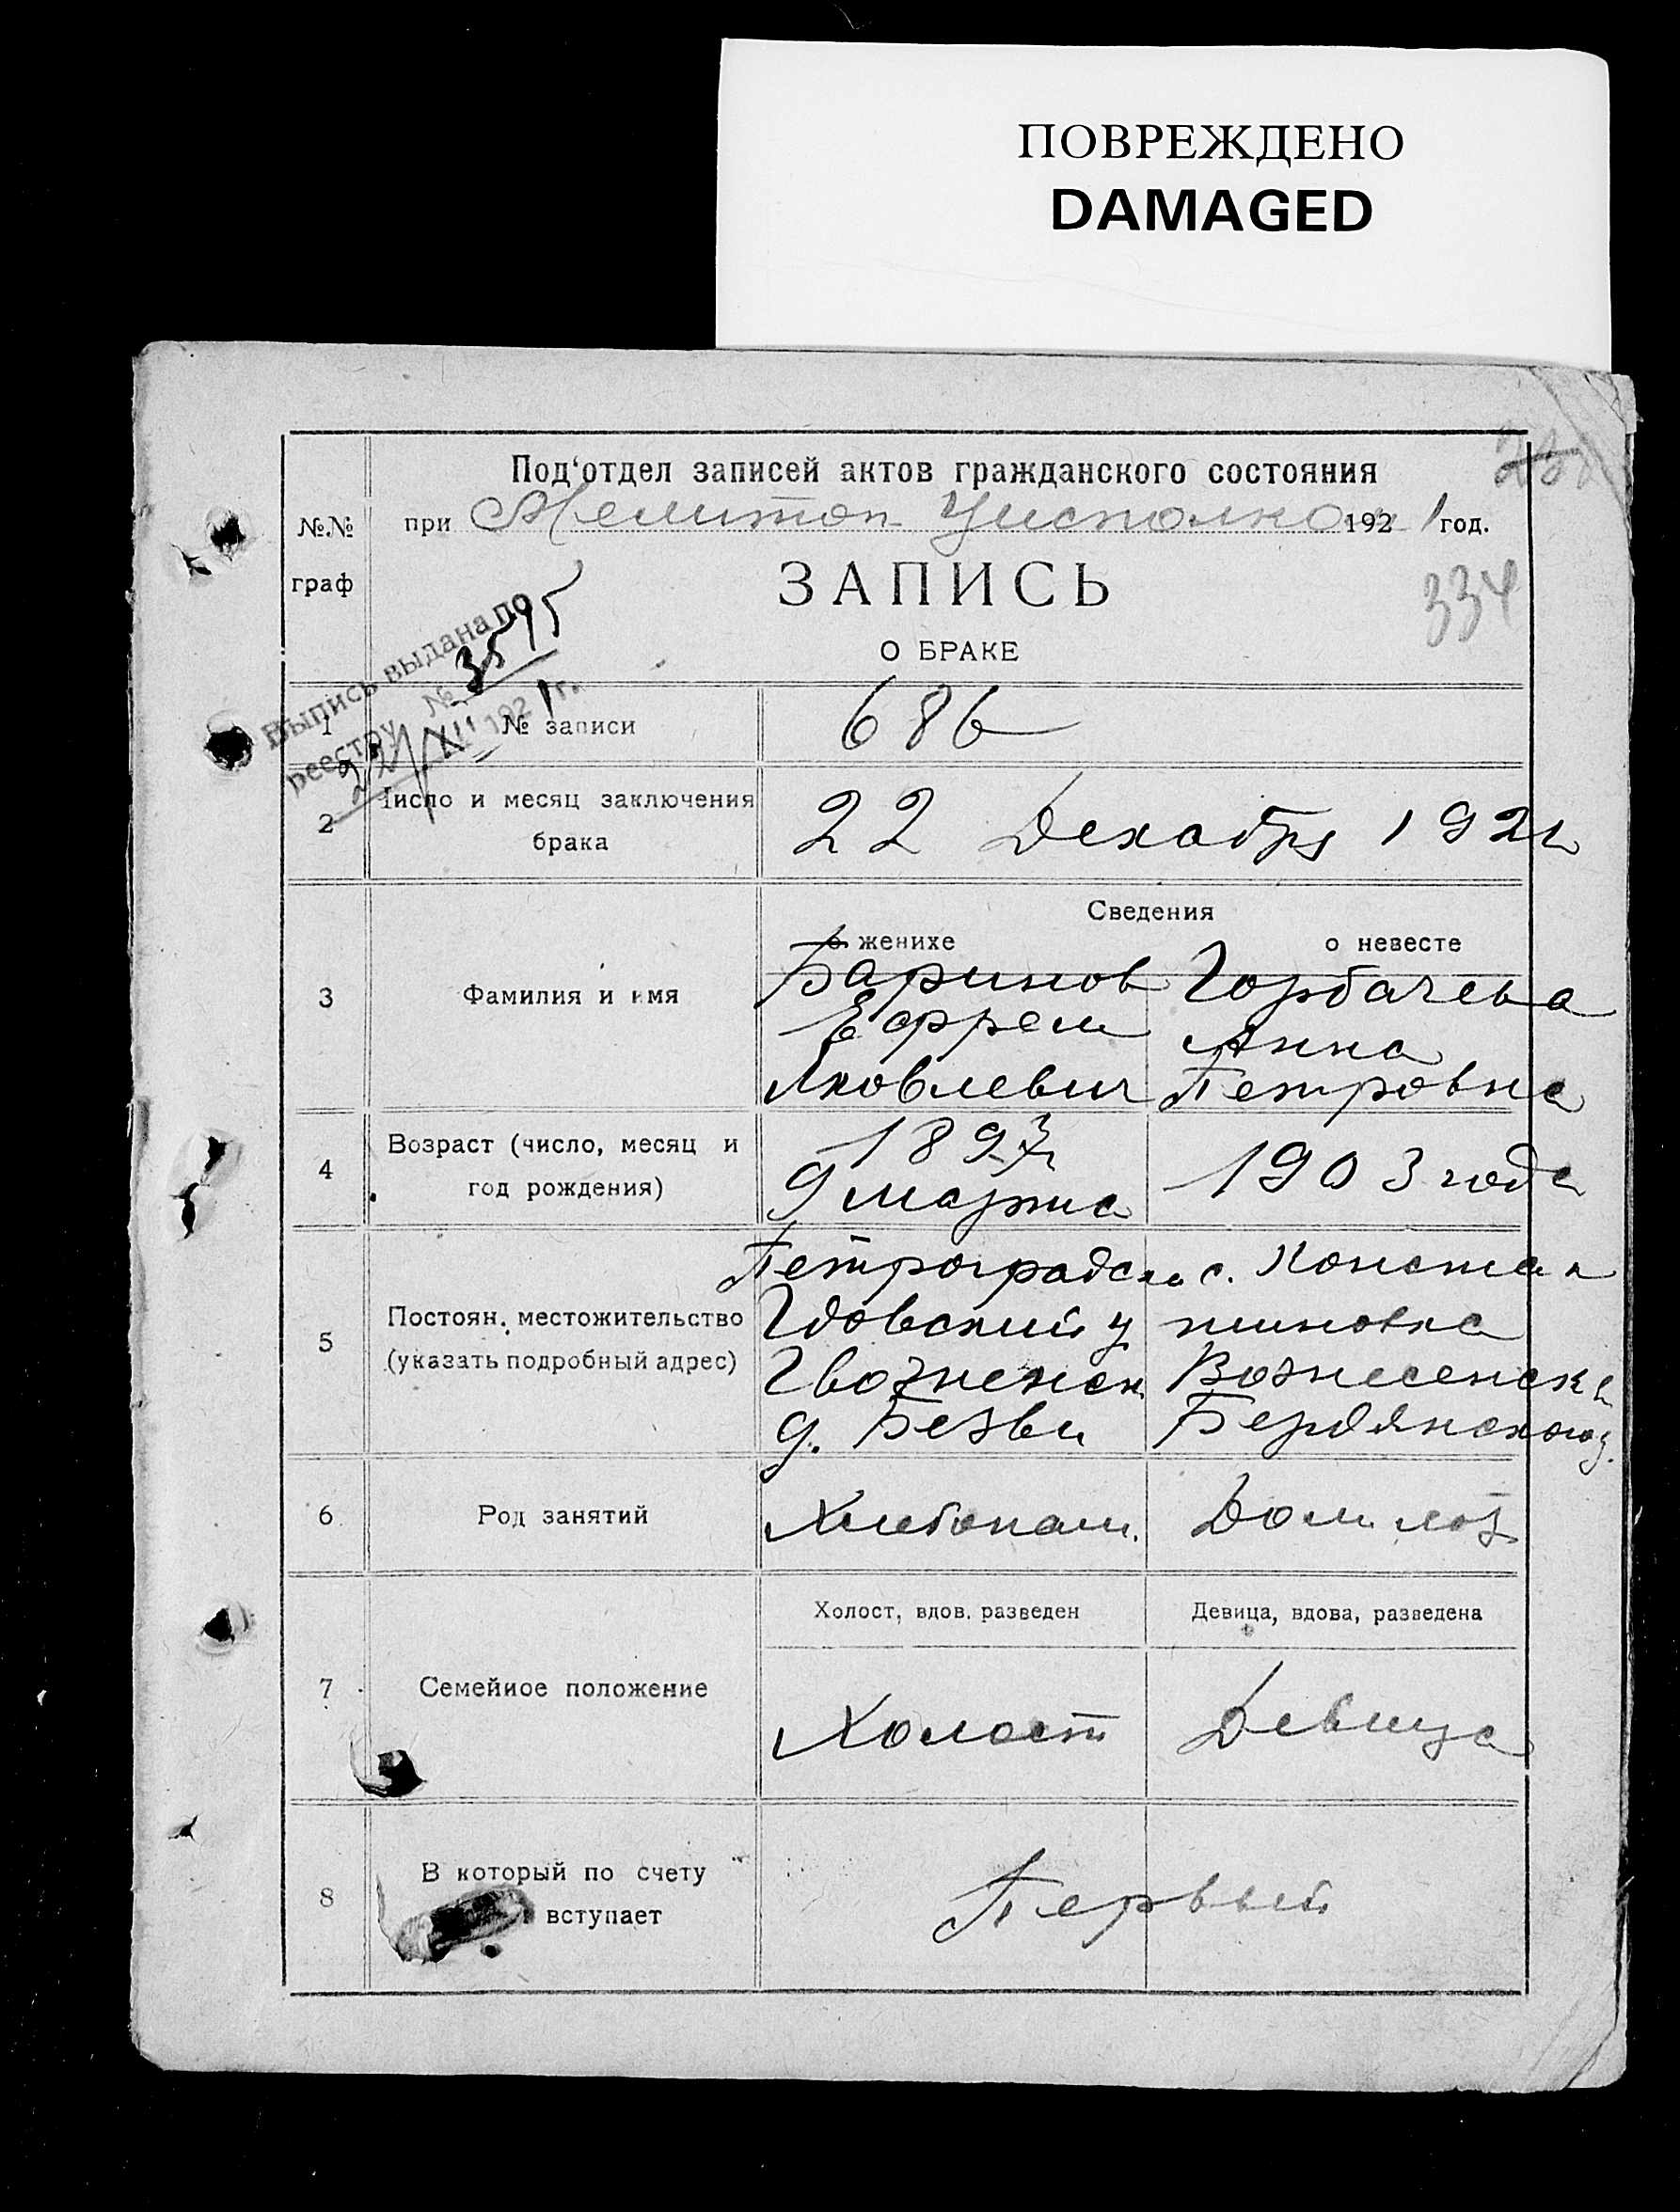 ПОВРЕЖДЕНО
DAMAGED
Под‘отдел записей актов гражданского состояния
№№ граф
при Мелитоп Уисполко 192 1 год.
334
ЗАПИСЬ
О БРАКЕ
Выпись выдана по
реестру № 3595
22/XII 1921 г.
1 № записи 686
2 Число и месяц заключения брака 22 Декабря 1921
Сведения
о женихе о невесте
3 Фамилия и имя
Баринов Горбачева
Ефрем Анна
Яковлевич Петровна
4 Возраст (число, месяц и год рождения)
1897 1903 года
9 марта
5 Постоян. местожительство (указать подробный адрес)
Петроградск с. Констан
Гдовский у тиновка
Вознесенск
д. Безва Бердянского у.
6 Род занятий Хлебопаш. Дом. хоз
Холост, вдов, разведен Девица, вдова, разведена
7 Семейное положение Холост Девица
8 В который по счету вступает Первый